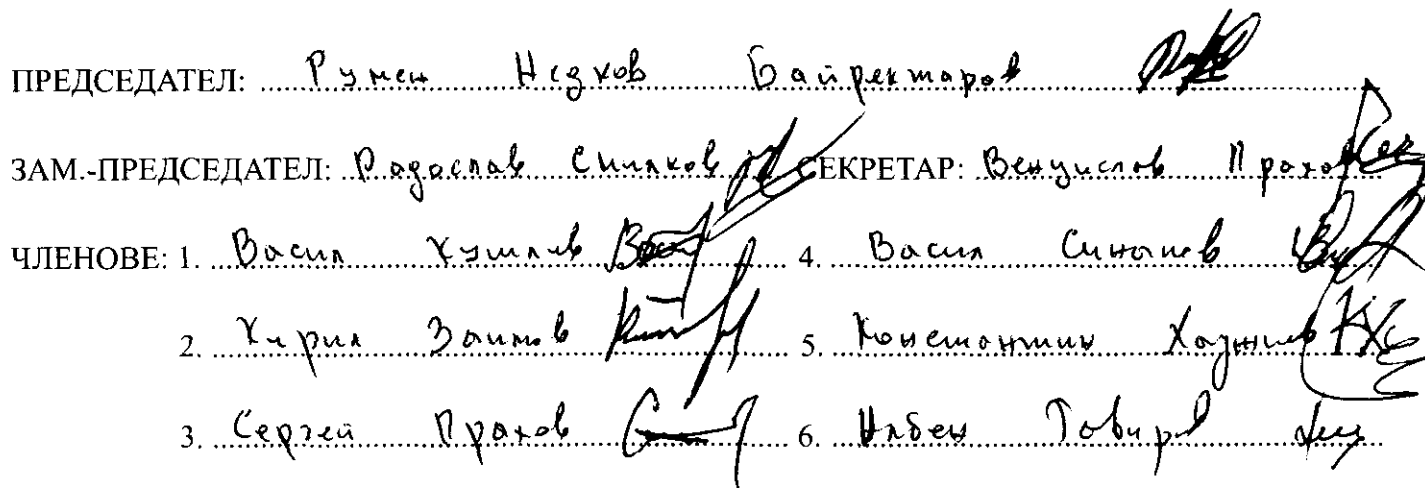 ПРЕДСЕДАТЕЛ: Румен Недков Байректаров
ЗАМ.-ПРЕДСЕДАТЕЛ: Радослав СЕКРЕТАР: Венцислав Прахов
ЧЛЕНОВЕ: 1. Васил 4. Васил
2. Кирил Заимов 5. Константин Хаджиев
3. Сергей Прахов 6. Албен